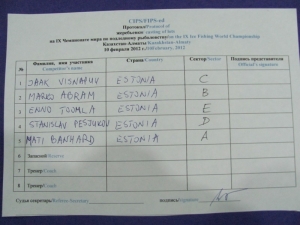 CIPS/FIPS-ed
Протокол/Protocol of
жеребьевки casting of lots
на IX Чемпионате мира по подледному рыболовству/on the IX Ice Fishing World Championship
Казахстан-Алматы/Kazakhstan-Almaty
18 февраля 2012 г./18February, 2012
№ Фамилия, имя участника Competitor's name Страна/Country Сектор/Sector Подпись представителя Official's signature
1 JAAK VISNAPUU ESTONIA C
2 MARKO ABRAM ESTONIA B
3 ENNO TOOMLA ESTONIA E
4 STANISLAV PESTJUKOV ESTONIA D
5 MATI BANHARD ESTONIA A
6 Запасной/
7 Тренер/Coach
8 Тренер/Coach
Судья секретарь/ подпись/signature